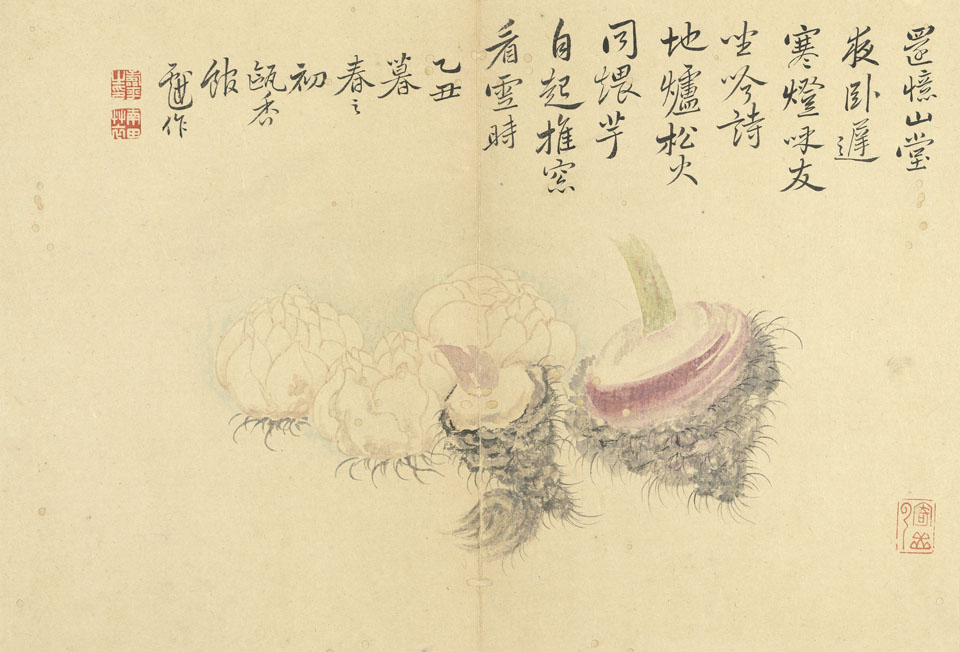 還憶山堂
夜臥遲
寒燈呼友
坐吟詩
地爐松火
同煨芋
自起推窓
看雪時
乙丑
暮
春之
初
甌香
館
壽平作
南田草衣